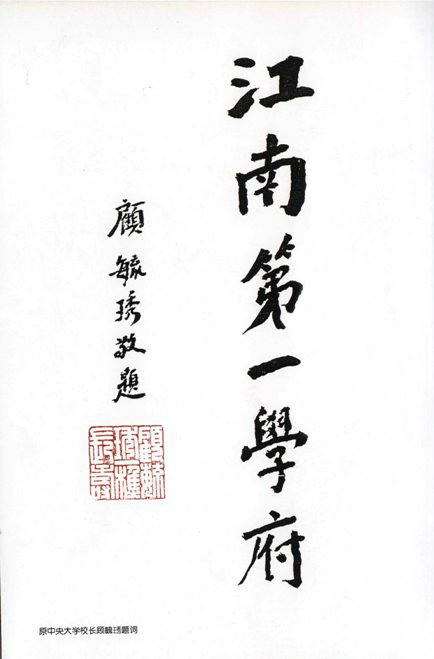 江南第一學府
顧毓琇敬題
顧毓琇一樵長壽
原中央大学校长顾毓琇题词